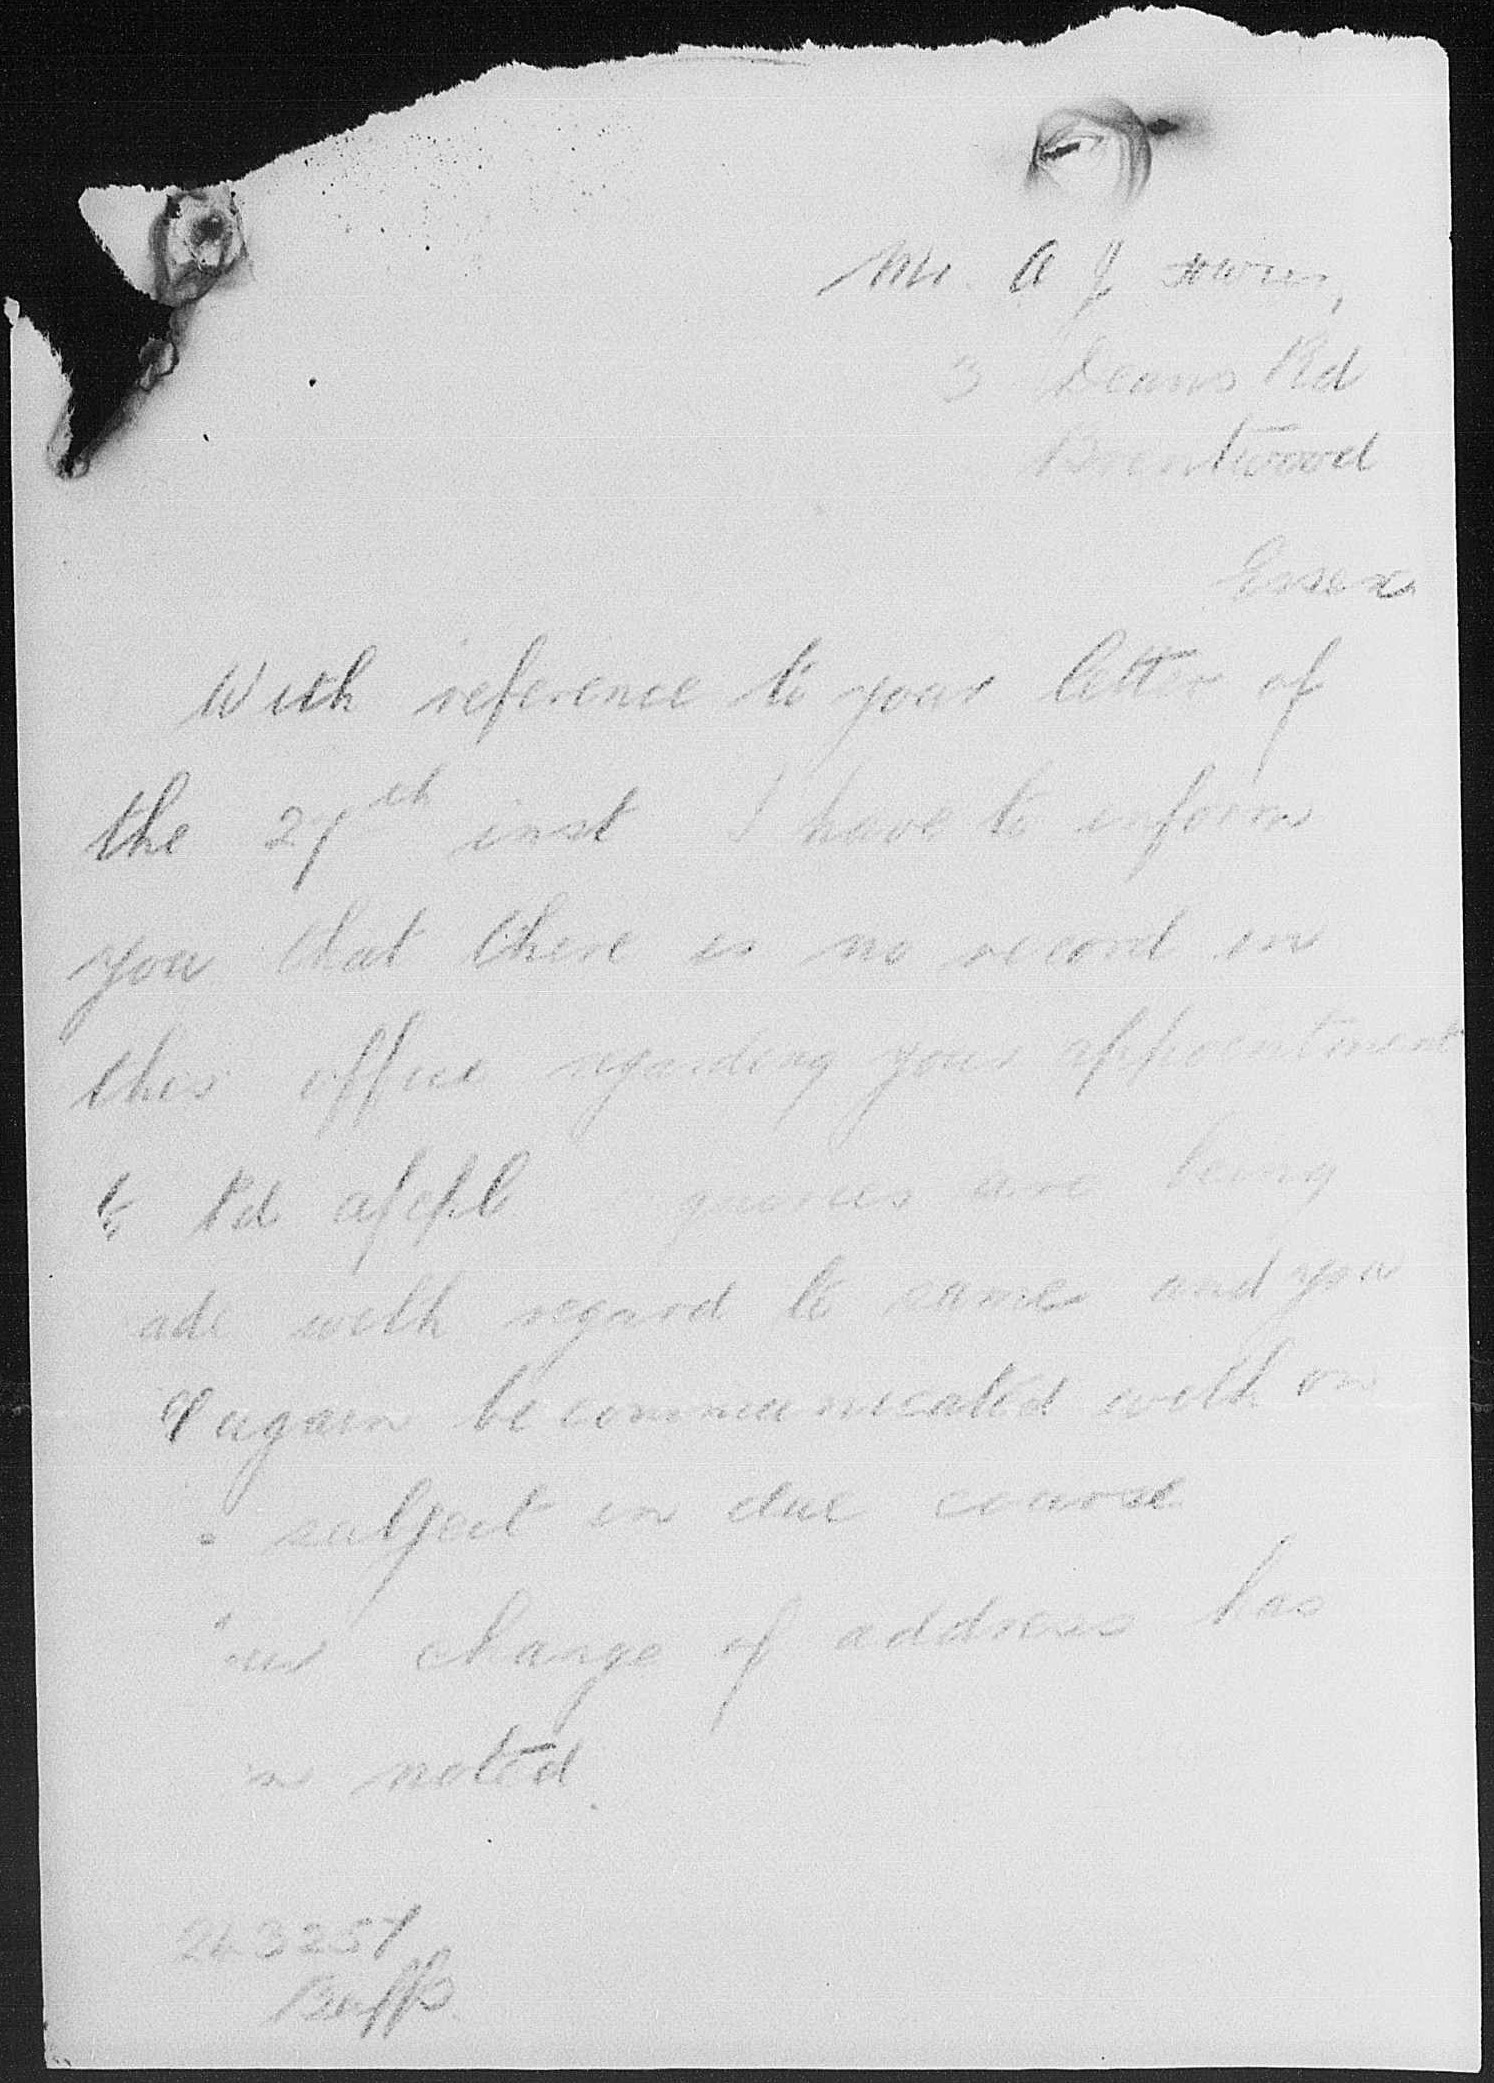 Mr. A J
3 Deans Rd
Brentwood
Essex
With reference to your letter of
the 27th inst I have to inform
you that there is no record in
this office regarding your appointment
to Pd a/cpl quiries are being
ade with regard to same and you
ll again be communicated with on
e subject in due course
our change of address has
n noted.
263257
Buffs.